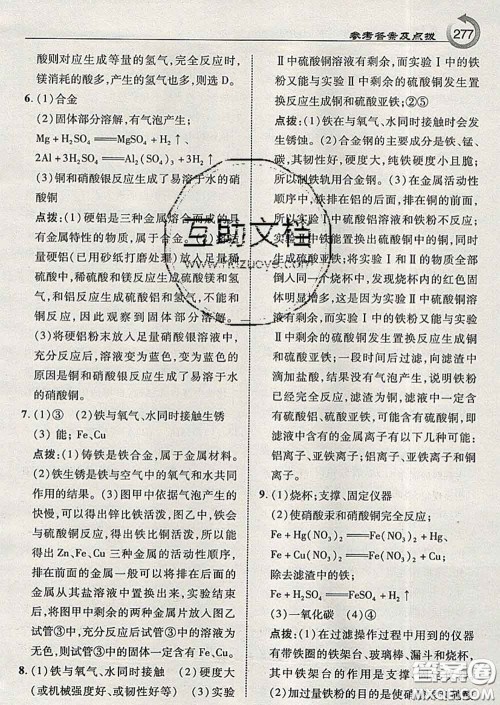 参考答案及点拨 277
酸则对应生成等量的氢气,完全反应时,
镁消耗的酸多,产生的氢气也多,则选 D。
6. (1)合金
(2)固体部分溶解,有气泡产生;
Mg+H₂SO₄══MgSO₄+H₂↑、
2Al+3H₂SO₄══Al₂(SO₄)₃+3H₂↑
(3)铜和硝酸银反应生成了易溶于水的硝
酸铜
点拨:(1)硬铝是三种金属熔合而成的具
有金属特性的物质,属于合金。
硬铝(已用砂纸打磨处理)放入足量稀
硫酸中,稀硫酸和镁反应生成硫酸镁和氢
气,和铝反应生成硫酸铝和氢气,不能和
铜反应,因此观察到固体部分溶解。
(3)将硬铝粉末放入足量硝酸银溶液中,
充分反应后,溶液变为蓝色,变为蓝色的
原因是铜和硝酸银反应生成了易溶于水
的硝酸铜。
7. (1)③ (2)铁与氧气、水同时接触生锈
(3)能;Fe、Cu
点拨:(1)铸铁是铁合金,属于金属材料。
(2)铁生锈是铁与空气中的氧气和水共同
作用的结果。(3)图甲中依据气泡产生的
快慢,可以得出锌比铁活动性强,铁能与
硫酸铜反应,得出铁比铜活动性强,所以
能得出 Zn、Fe、Cu 三种金属的活动性顺序,
排在前面的金属一般可以将排在后面的金
属从其盐溶液中置换出来,实验结束后,
如将图甲中剩余的两种金属片放入图乙
试管③中,充分反应后试管③中的溶液为
无色,则试管③中的固体一定含有 Fe、Cu。
8. (1)铁与氧气、水同时接触 (2)硬度大
(或机械强度好、或韧性好) (3)实验
Ⅱ中硫酸铜溶液有剩余,而实验Ⅰ中的铁
粉又能与实验Ⅱ中剩余的硫酸铜发生置
换反应生成铜和硫酸亚铁;②⑤
点拨:(1)铁在与氧气、水同时接触时会发
生锈蚀。(2)合金钢的主要成分是铁、锰、
碳,其韧性好,硬度大,纯铁硬度小且脆;
所以制铁轨用合金钢。(3)在金属活动性
顺序中,铁排在铝的后面,排在铜的前面,
所以实验Ⅰ中硫酸铝溶液和铁粉不反应;
实验Ⅱ中铁能置换出硫酸铜中的铜,同时
生成硫酸亚铁;将实验Ⅰ和实验Ⅱ中的物质全部
倒入同一个烧杯中,发现烧杯中的红色固
体明显增多,这是因为Ⅱ中硫酸铜溶液
有剩余,而实验Ⅰ中的铁粉又能与实验
Ⅱ中剩余的硫酸铜发生置换反应生成铜
和硫酸亚铁;一段时间过后过滤,向滤渣中
滴加盐酸,结果没有气泡产生,说明铁粉
已经完全反应,剩余的溶液中一定会含
有硫酸铝、硫酸亚铁,可能含有硫酸铜,即
滤液中含有的金属离子有以下两种可能:
铝离子、亚铁离子或铝离子、亚铁离子、铜
离子。
9. (1)烧杯;支撑、固定仪器
(2)使硝酸汞和硝酸铜完全反应;
Fe+Hg(NO₃)₂══Fe(NO₃)₂+Hg、
Fe+Cu(NO₃)₂══Fe(NO₃)₂+Cu;
除去滤渣中的铁;
Fe+H₂SO₄══FeSO₄+H₂↑
(3)一氧化碳 (4)④
点拨:(1)在过滤操作过程中用到的仪器
有带铁圈的铁架台、玻璃棒、烧杯、漏斗,
其中铁架台的作用是支撑、固定仪器。
(2)加过量铁粉的目的是使硝酸
互助文档
www.hlzuoye.com
答案圈
MXQE.COM